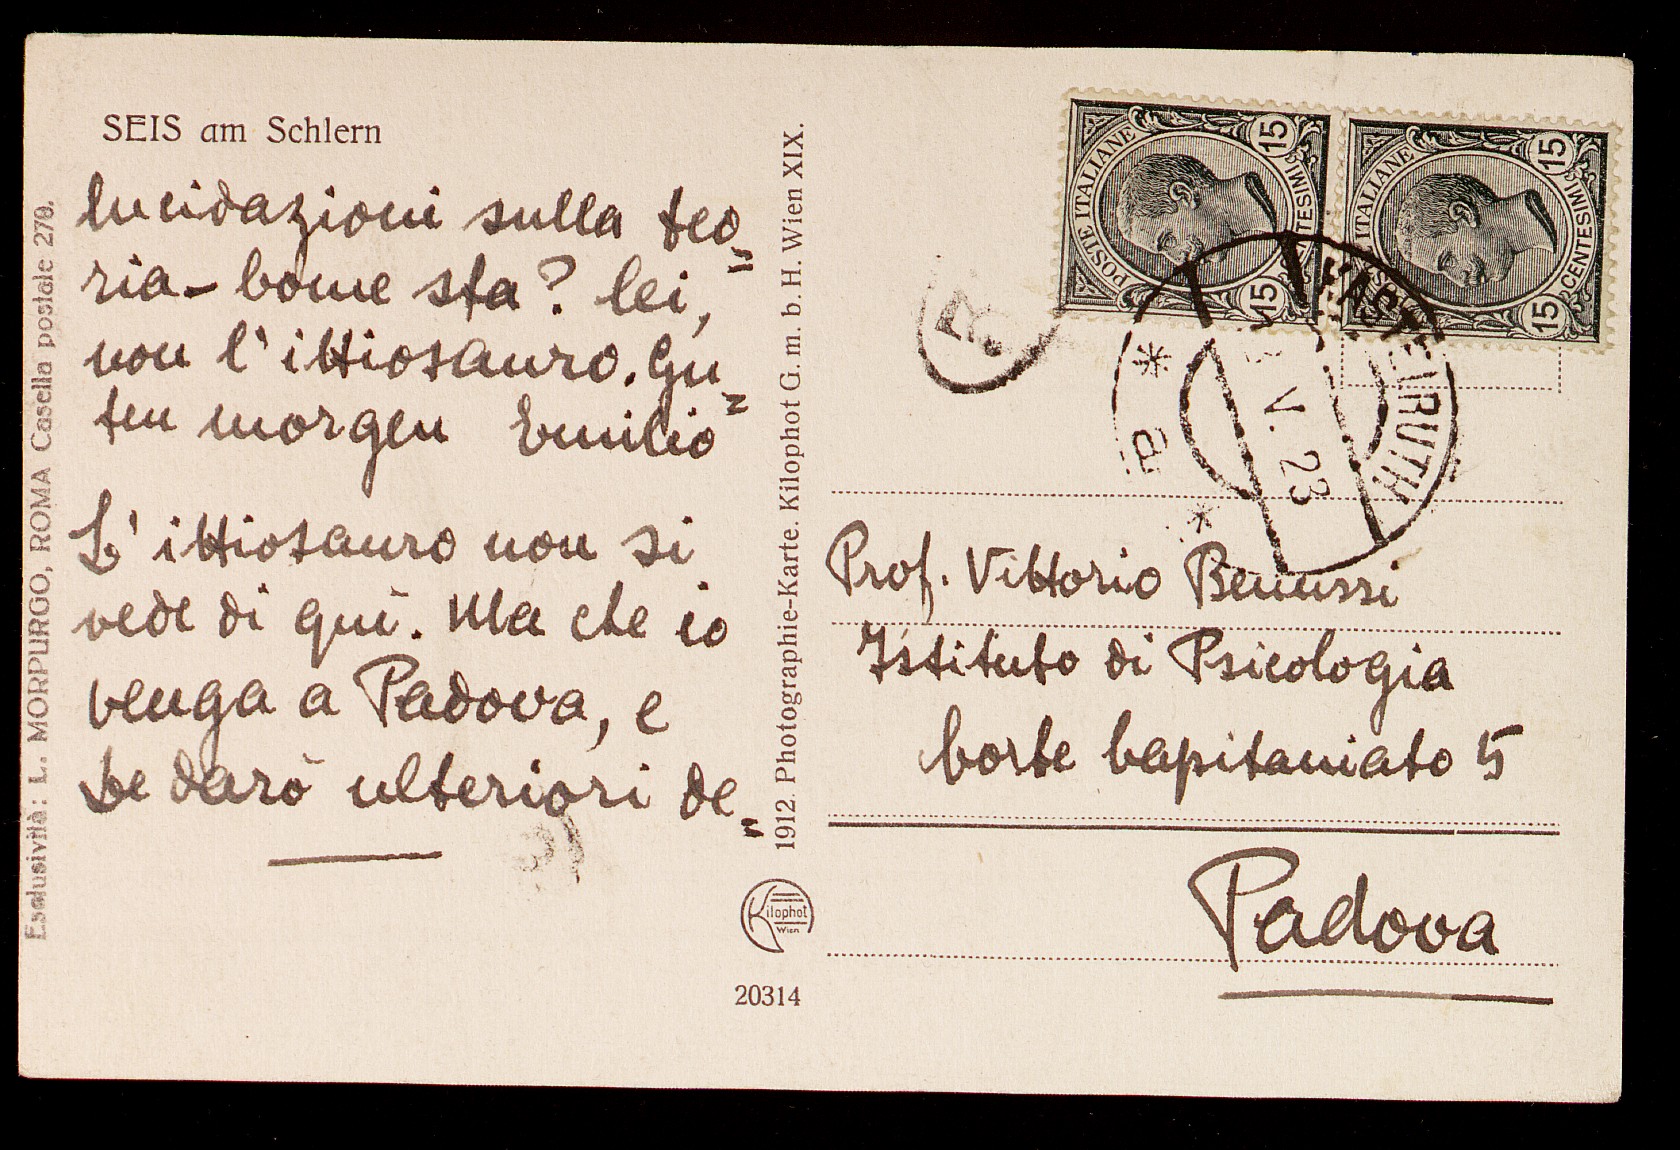 SEIS am Schlern
lucidazioni sulla teo„
ria – Come sta? lei,
non l'ittiosauro. Gu„
ten morgen Emilio
L'ittiosauro non si
vede di quì. Ma che io
venga a Padova, e
Le darò ulteriori de„
Esclusività: L. MORPURGO, ROMA Casella postale 270.
1912. Photographie-Karte. Kilophot G. m. b. H. Wien XIX.
Kilophot
Wien
20314
POSTE ITALIANE
15
15
CENTESIMI
POSTE ITALIANE
15
15
CENTESIMI
KASTELRUTH
V. 23
* a *
Prof. Vittorio Benussi
Istituto di Psicologia
Corte Capitaniato 5
Padova